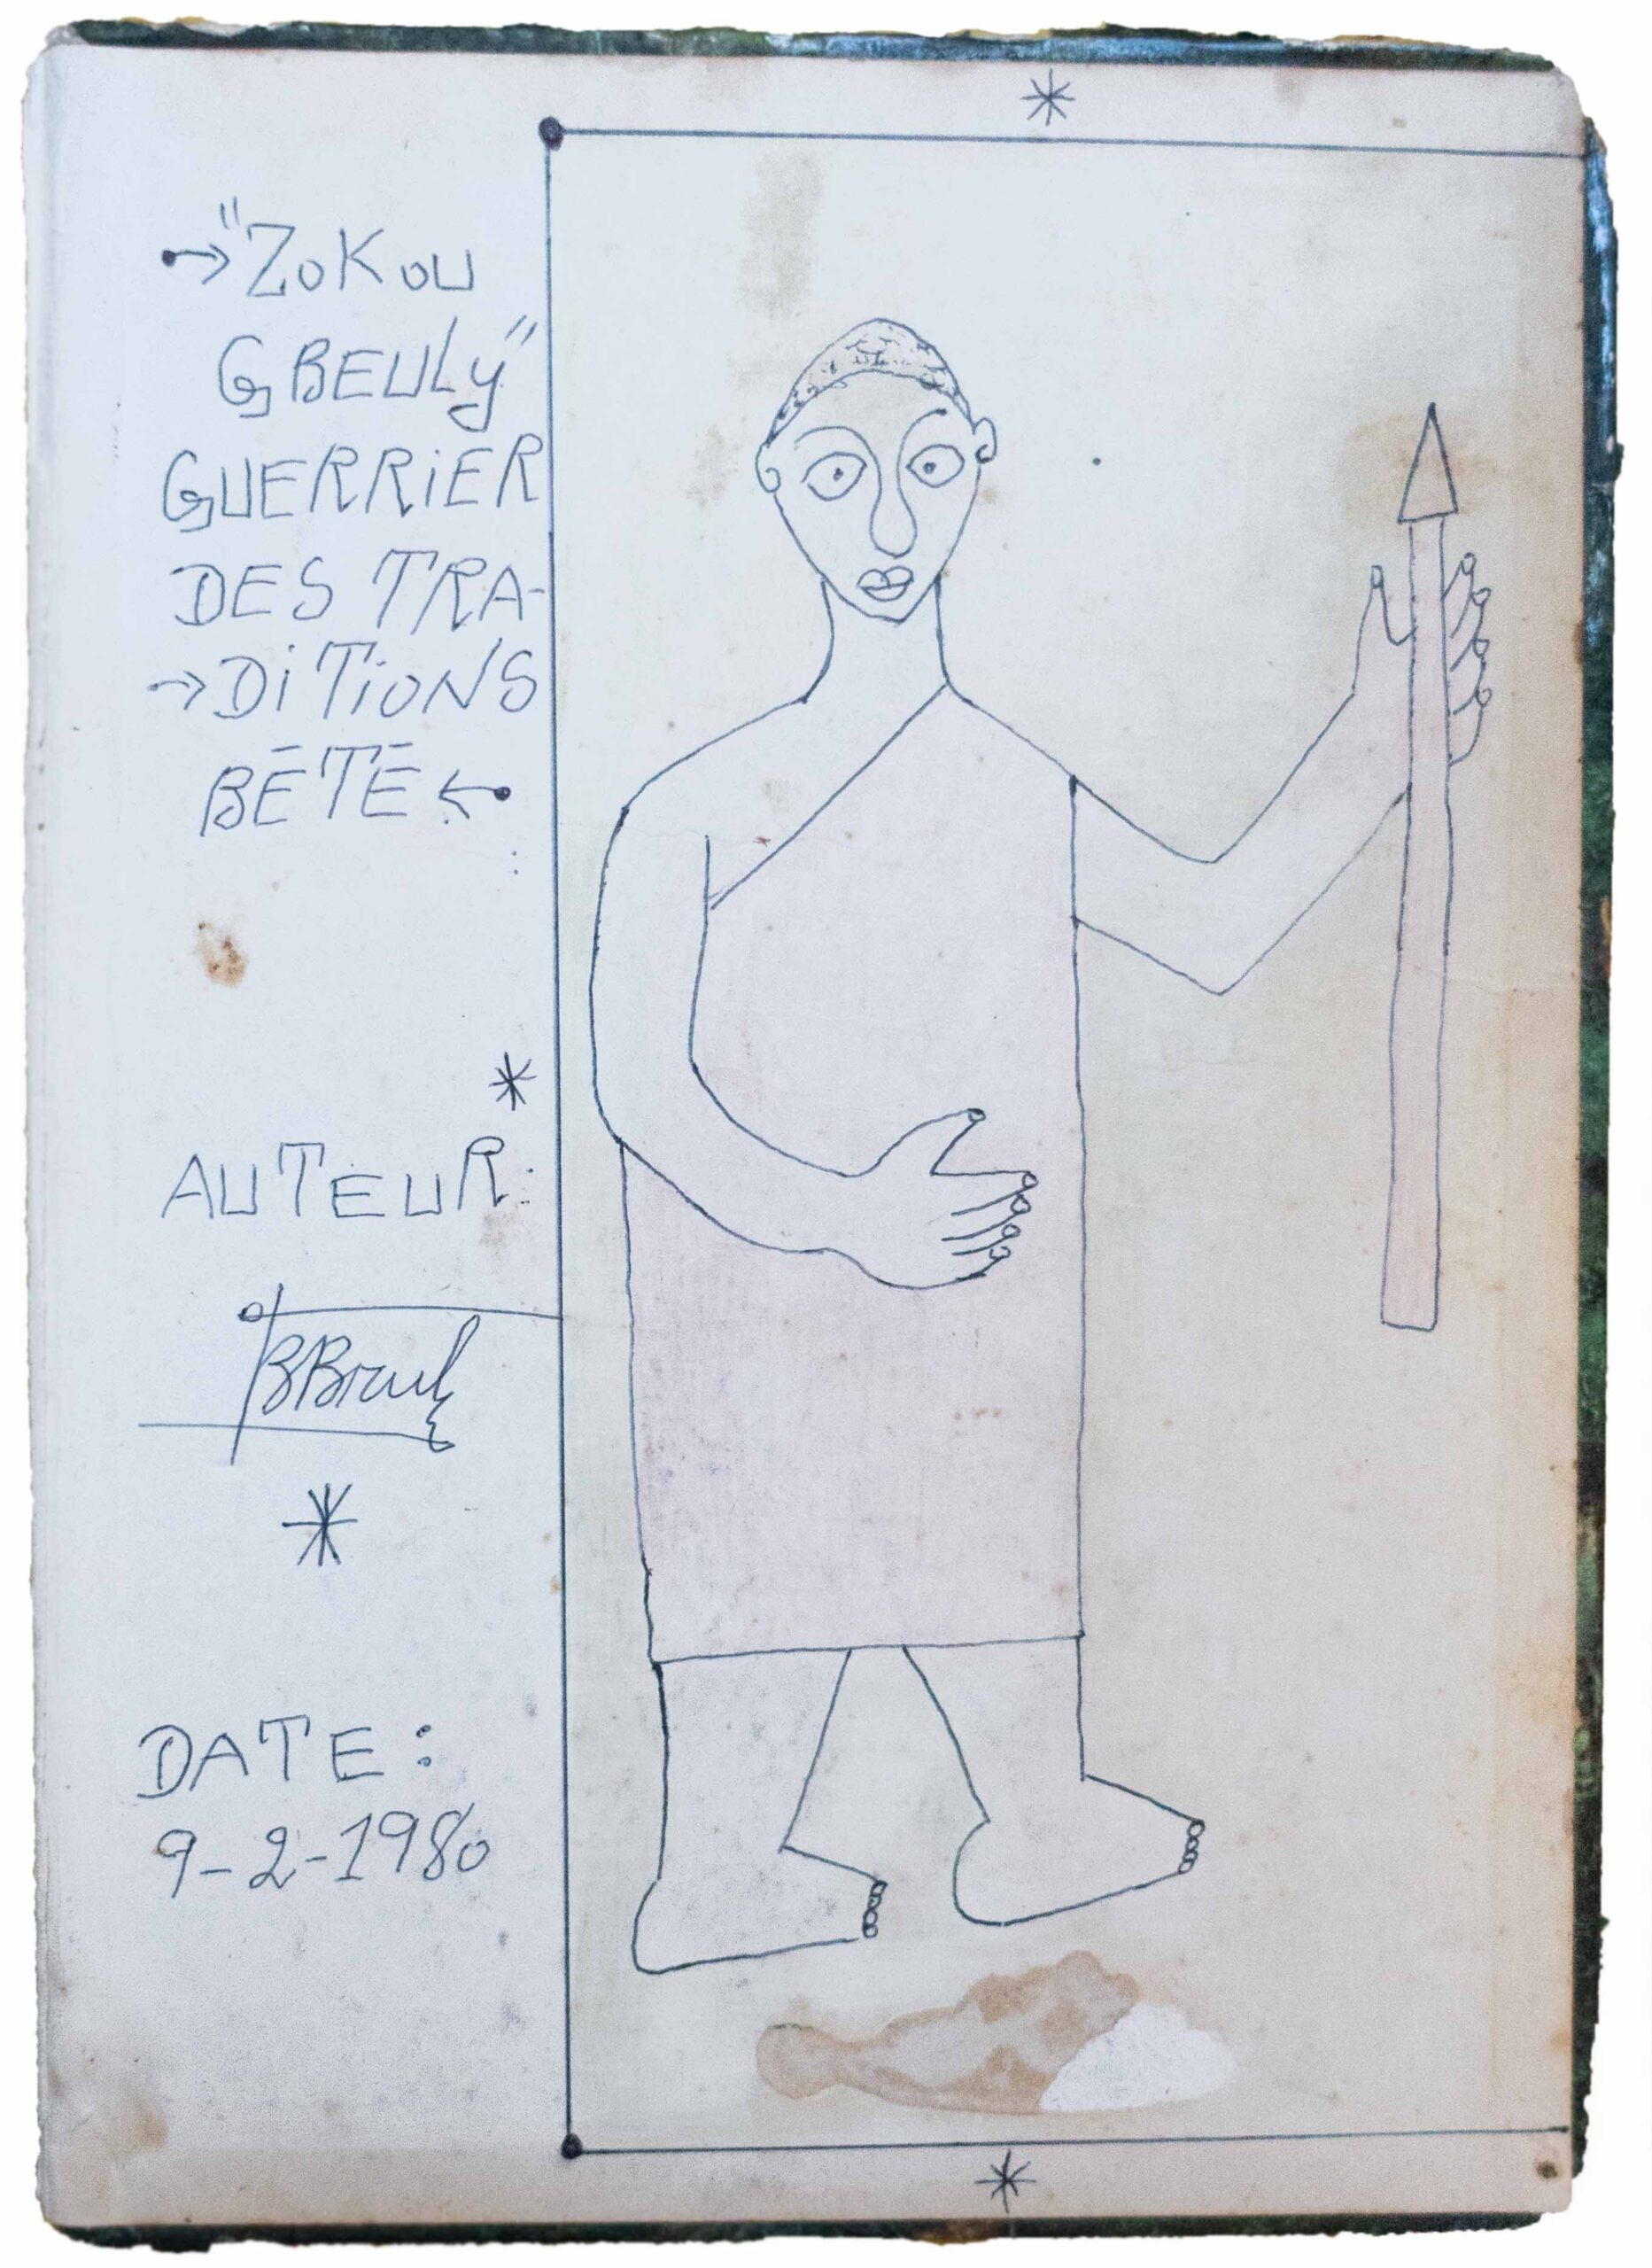 "ZOKOU
GBEULY"
GUERRIER
DES TRA-
DITIONS
BÉTÉ
AUTEUR:
DATE:
9-2-1980